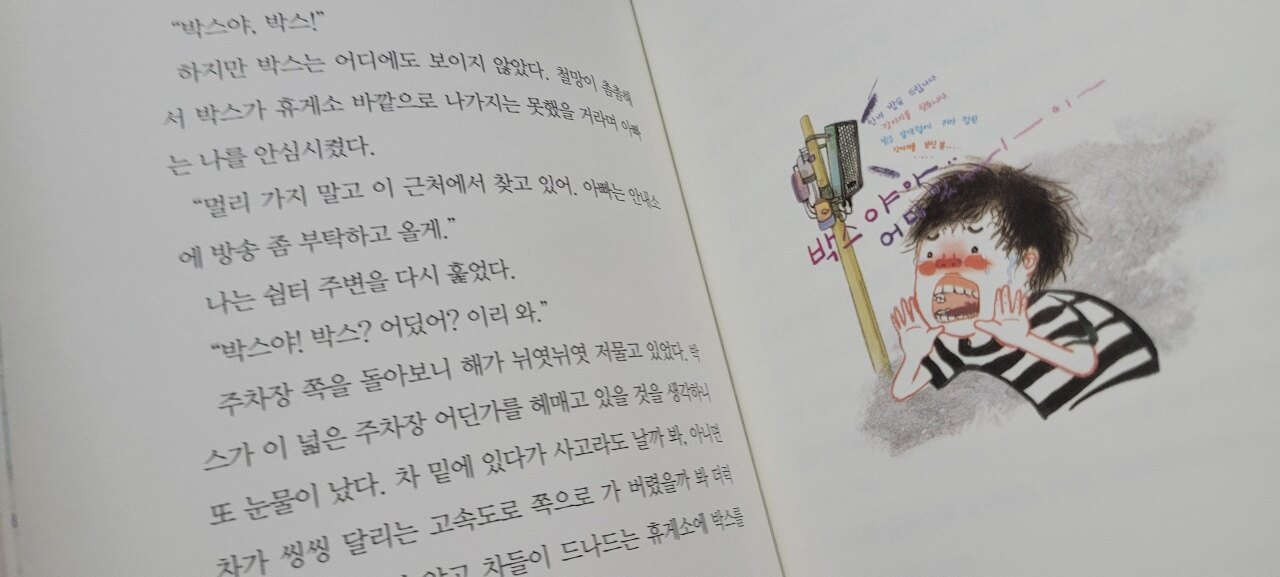 “박스야, 박스!”
하지만 박스는 어디에도 보이지 않았다. 철망이 촘촘해
서 박스가 휴게소 바깥으로 나가지는 못했을 거라며 아빠
는 나를 안심시켰다.
“멀리 가지 말고 이 근처에서 찾고 있어. 아빠는 안내소
에 방송 좀 부탁하고 올게.”
나는 쉼터 주변을 다시 훑었다.
“박스야! 박스? 어딨어? 이리 와.”
주차장 쪽을 돌아보니 해가 뉘엿뉘엿 저물고 있었다. 박
스가 이 넓은 주차장 어딘가를 헤매고 있을 것을 생각하니
또 눈물이 났다. 차 밑에 있다가 사고라도 날까 봐, 아니면
차가 씽씽 달리는 고속도로 쪽으로 가 버렸을까 봐 더럭
차들이 드나드는 휴게소에 박스를
안내 방송 드립니다
강아지를 찾습니다
박스야아